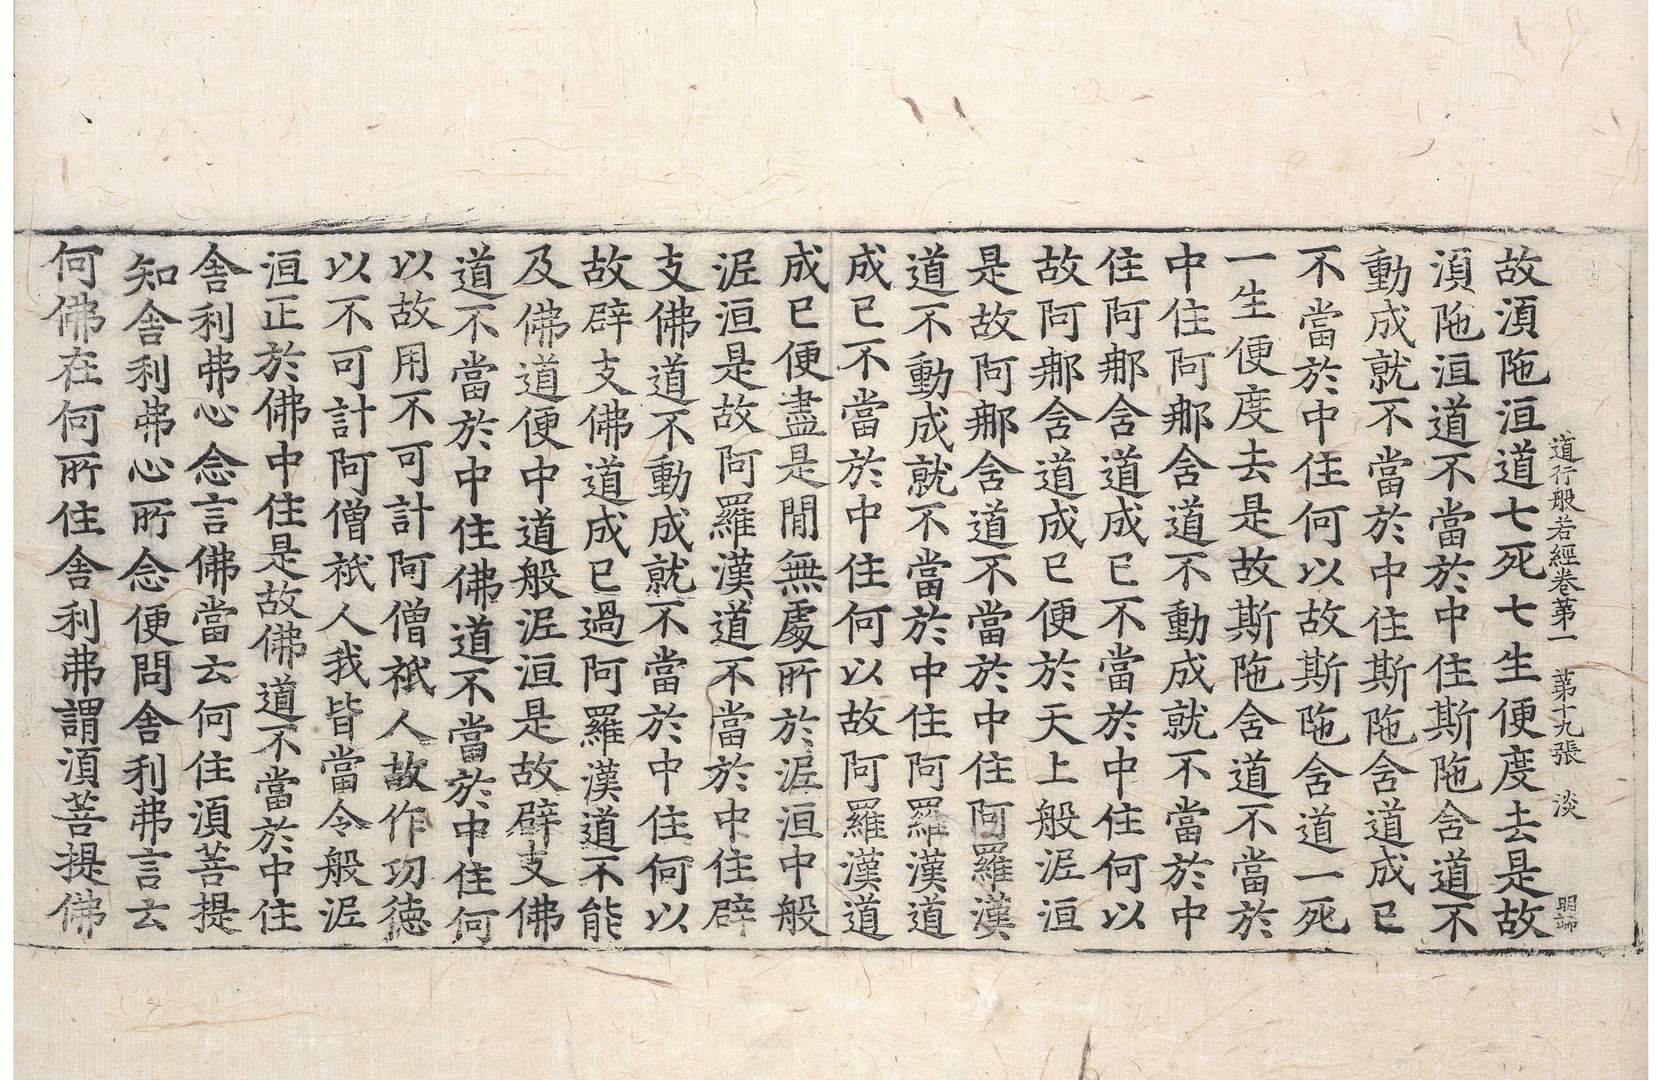 道行般若經卷第一 第十九張 淡
故湏陁洹道七死七生便度去是故
湏陁洹道不當於中住斯陁舍道不
動成就不當於中住斯陁舍道成已
不當於中住何以故斯陁舍道一死
一生便度去是故斯陁舍道不當於
中住阿郍舍道不動成就不當於中
住阿郍舍道成已不當於中住何以
故阿郍舍道成已便於天上般泥洹
是故阿郍舍道不當於中住阿羅漢
道不動成就不當於中住阿羅漢道
成已不當於中住何以故阿羅漢道
成已便盡是閒無處所於泥洹中般
泥洹是故阿羅漢道不當於中住辟
支佛道不動成就不當於中住何以
故辟支佛道成已過阿羅漢道不能
及佛道便中道般泥洹是故辟支佛
道不當於中住佛道不當於中住何
以故用不可計阿僧祇人故作功德
以不可計阿僧祇人我皆當令般泥
洹正於佛中住是故佛道不當於中住
舍利弗心念言佛當云何住湏菩提
知舍利弗心所念便問舍利弗言云
何佛在何所住舍利弗謂湏菩提佛